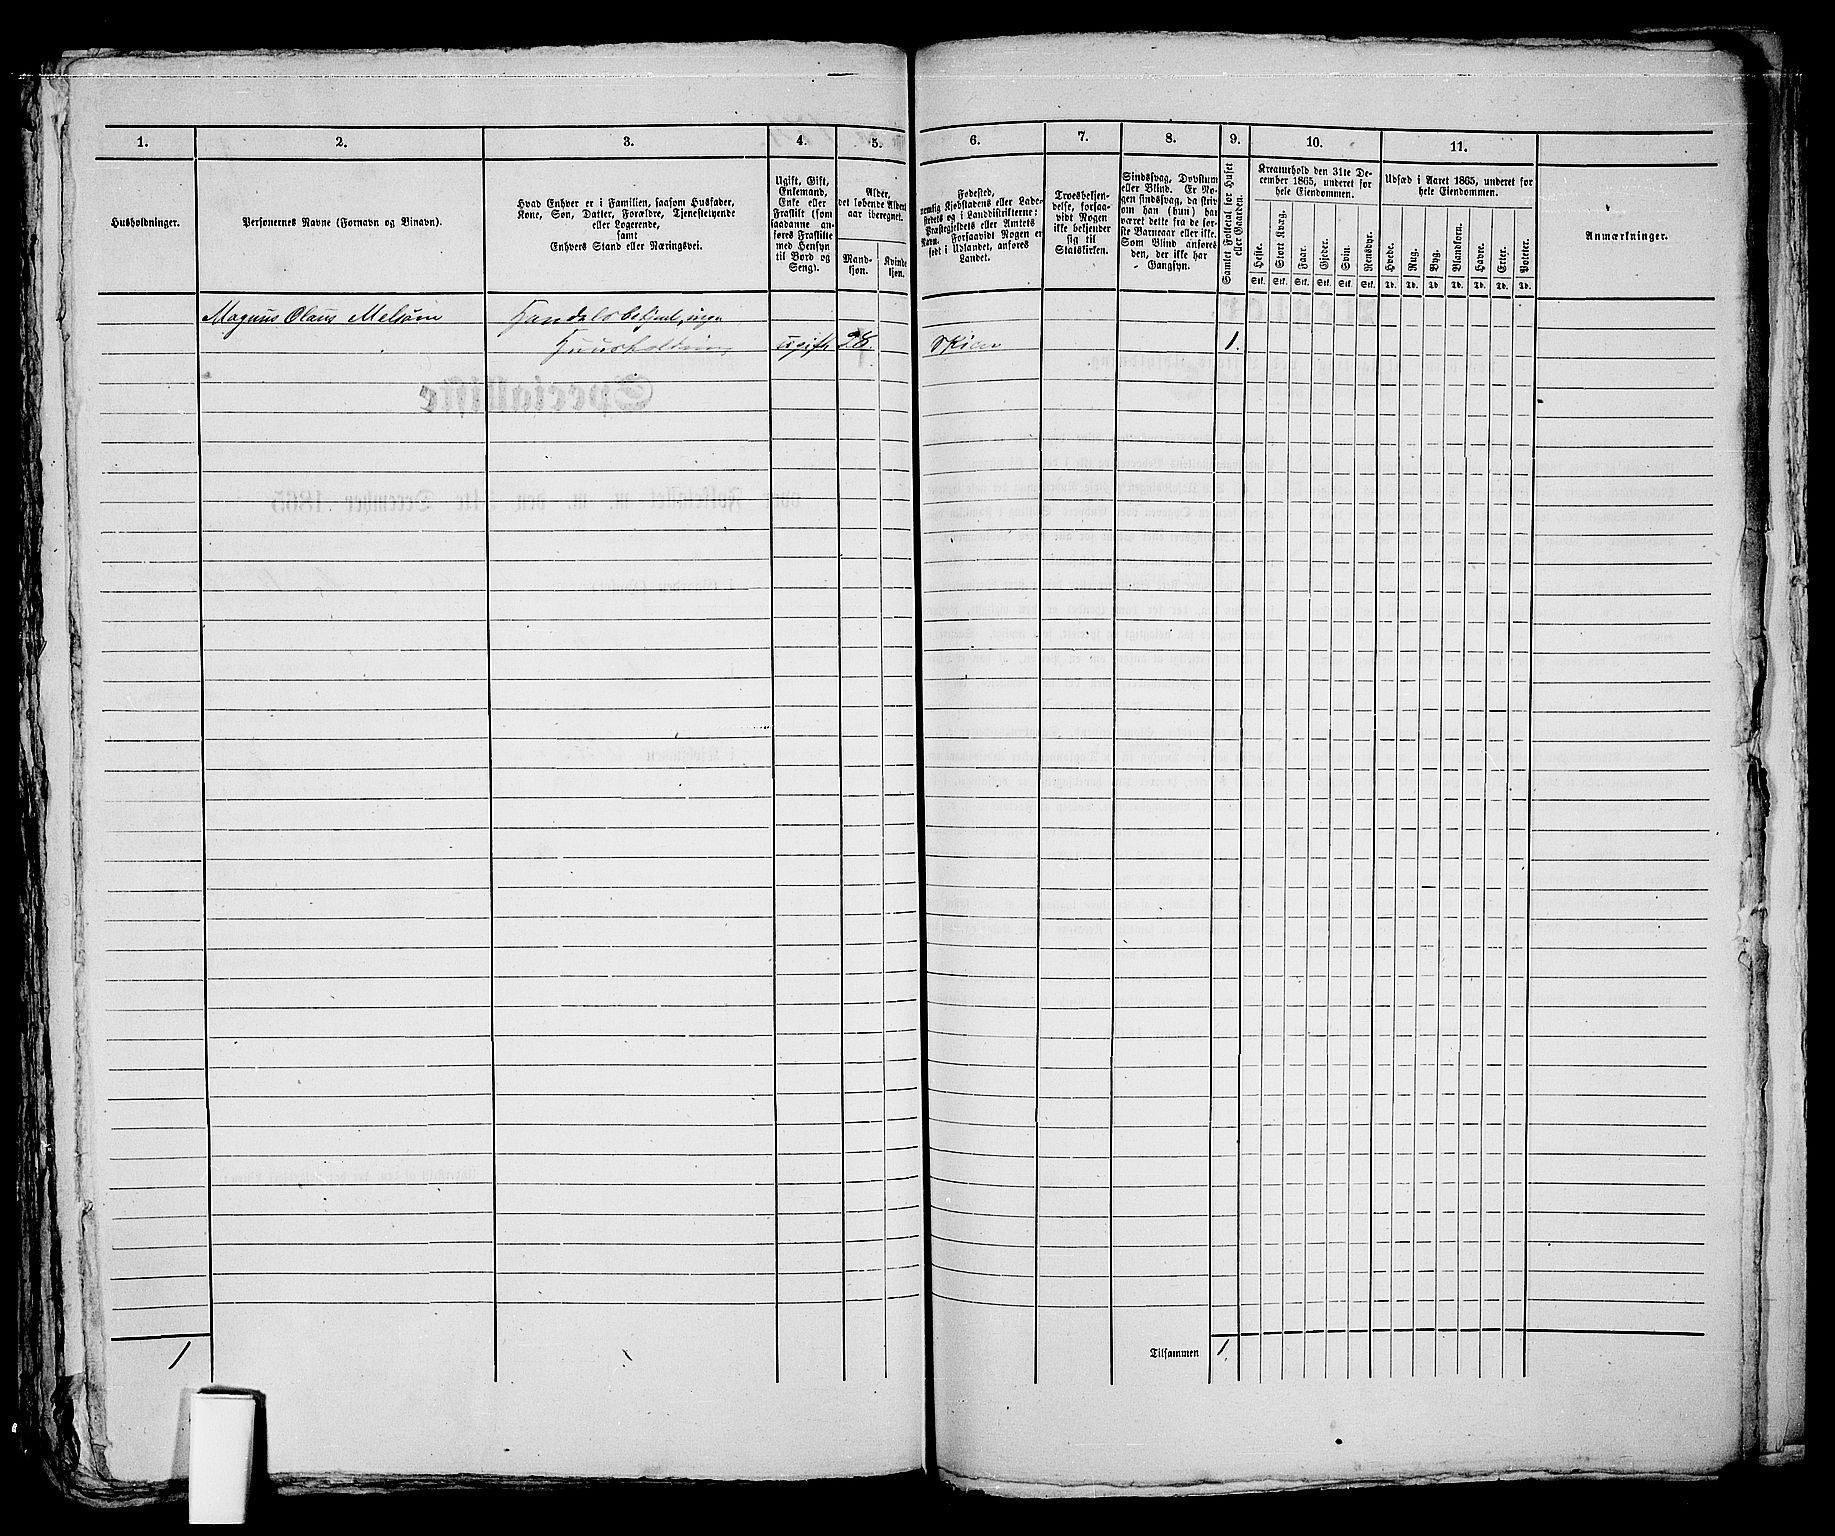 1.
2.
3.
4.
5.
6.
7.
8.
9.
10.
11.
Husholdninger.
Personernes Navne (Fornavn og Tilnavn).
Hvad Enhver er i Familien, saasom Husfader,
Kone, Søn, Datter, Forældre, Tjenestetyende
eller Logerende,
samt
Enhvers Stand eller Næringsvei.
Ugift, Gift,
Enkemand,
Enke eller
Fraskilt (som
saadanne an-
føres Fraskilte
med Hensyn
til Bord og
Seng).
Alder,
det løbende Alders-
aar iberegnet.
Mand-
kjøn.
Kvinde-
kjøn.
Fødested,
nemlig Kjøbstadens eller Lade-
stedets og i Landdistrikterne:
Præstegjeldets eller Amtets
Navn. Forsaavidt Nogen er
født i Udlandet, anføres
Landet.
Troesbekjen-
delse, forsaa-
vidt Nogen
ikke bekjender
sig til
Statskirken.
Sindssvag, Døvstum
eller Blind. Er No-
gen sindssvag, da skriv
om han (hun) har
været dette fra de før-
ste Barneaar eller ikke.
Som Blind anføres
den, der ikke har
Gangsyn.
Samlet Folketal for Huset
eller Gaarden.
Kreaturhold den 31te De-
cember 1865, underet for
hele Eiendommen.
Heste.
Stort Kvæg.
Faar.
Gjeder.
Svin.
Rensdyr.
Stk. Stk. Stk. Stk. Stk. Stk.
Udsæd i Aaret 1865, underet for
hele Eiendommen.
Hvede.
Rug.
Byg.
Blandkorn.
Havre.
Erter.
Poteter.
Td. Td. Td. Td. Td. Td. Td.
Anmærkninger.
Magnus Olaus Melsom Handelsbetjent, ingen
Huusholdning ugift 28. Skien 1.
1
Tilsammen 1.